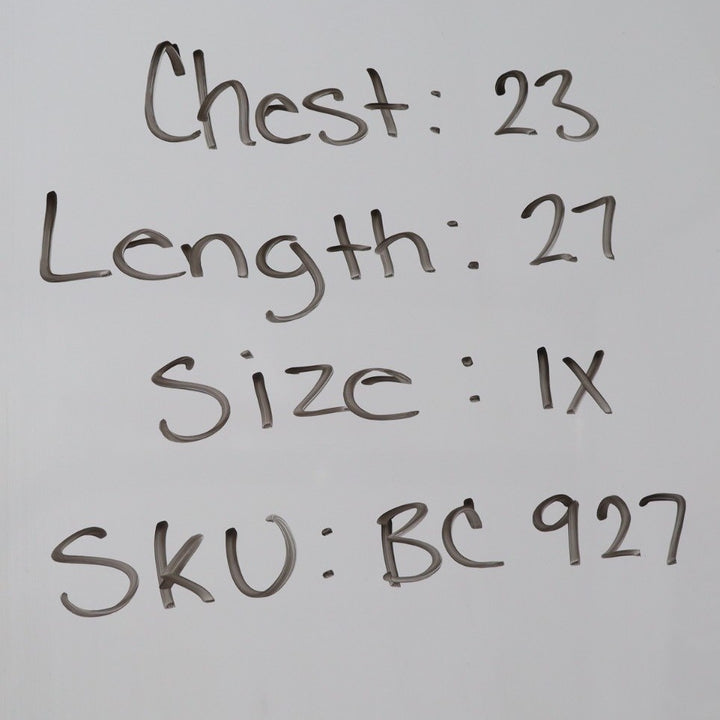 Chest: 23
Length: 27
Size: 1X
SKU: BC 927